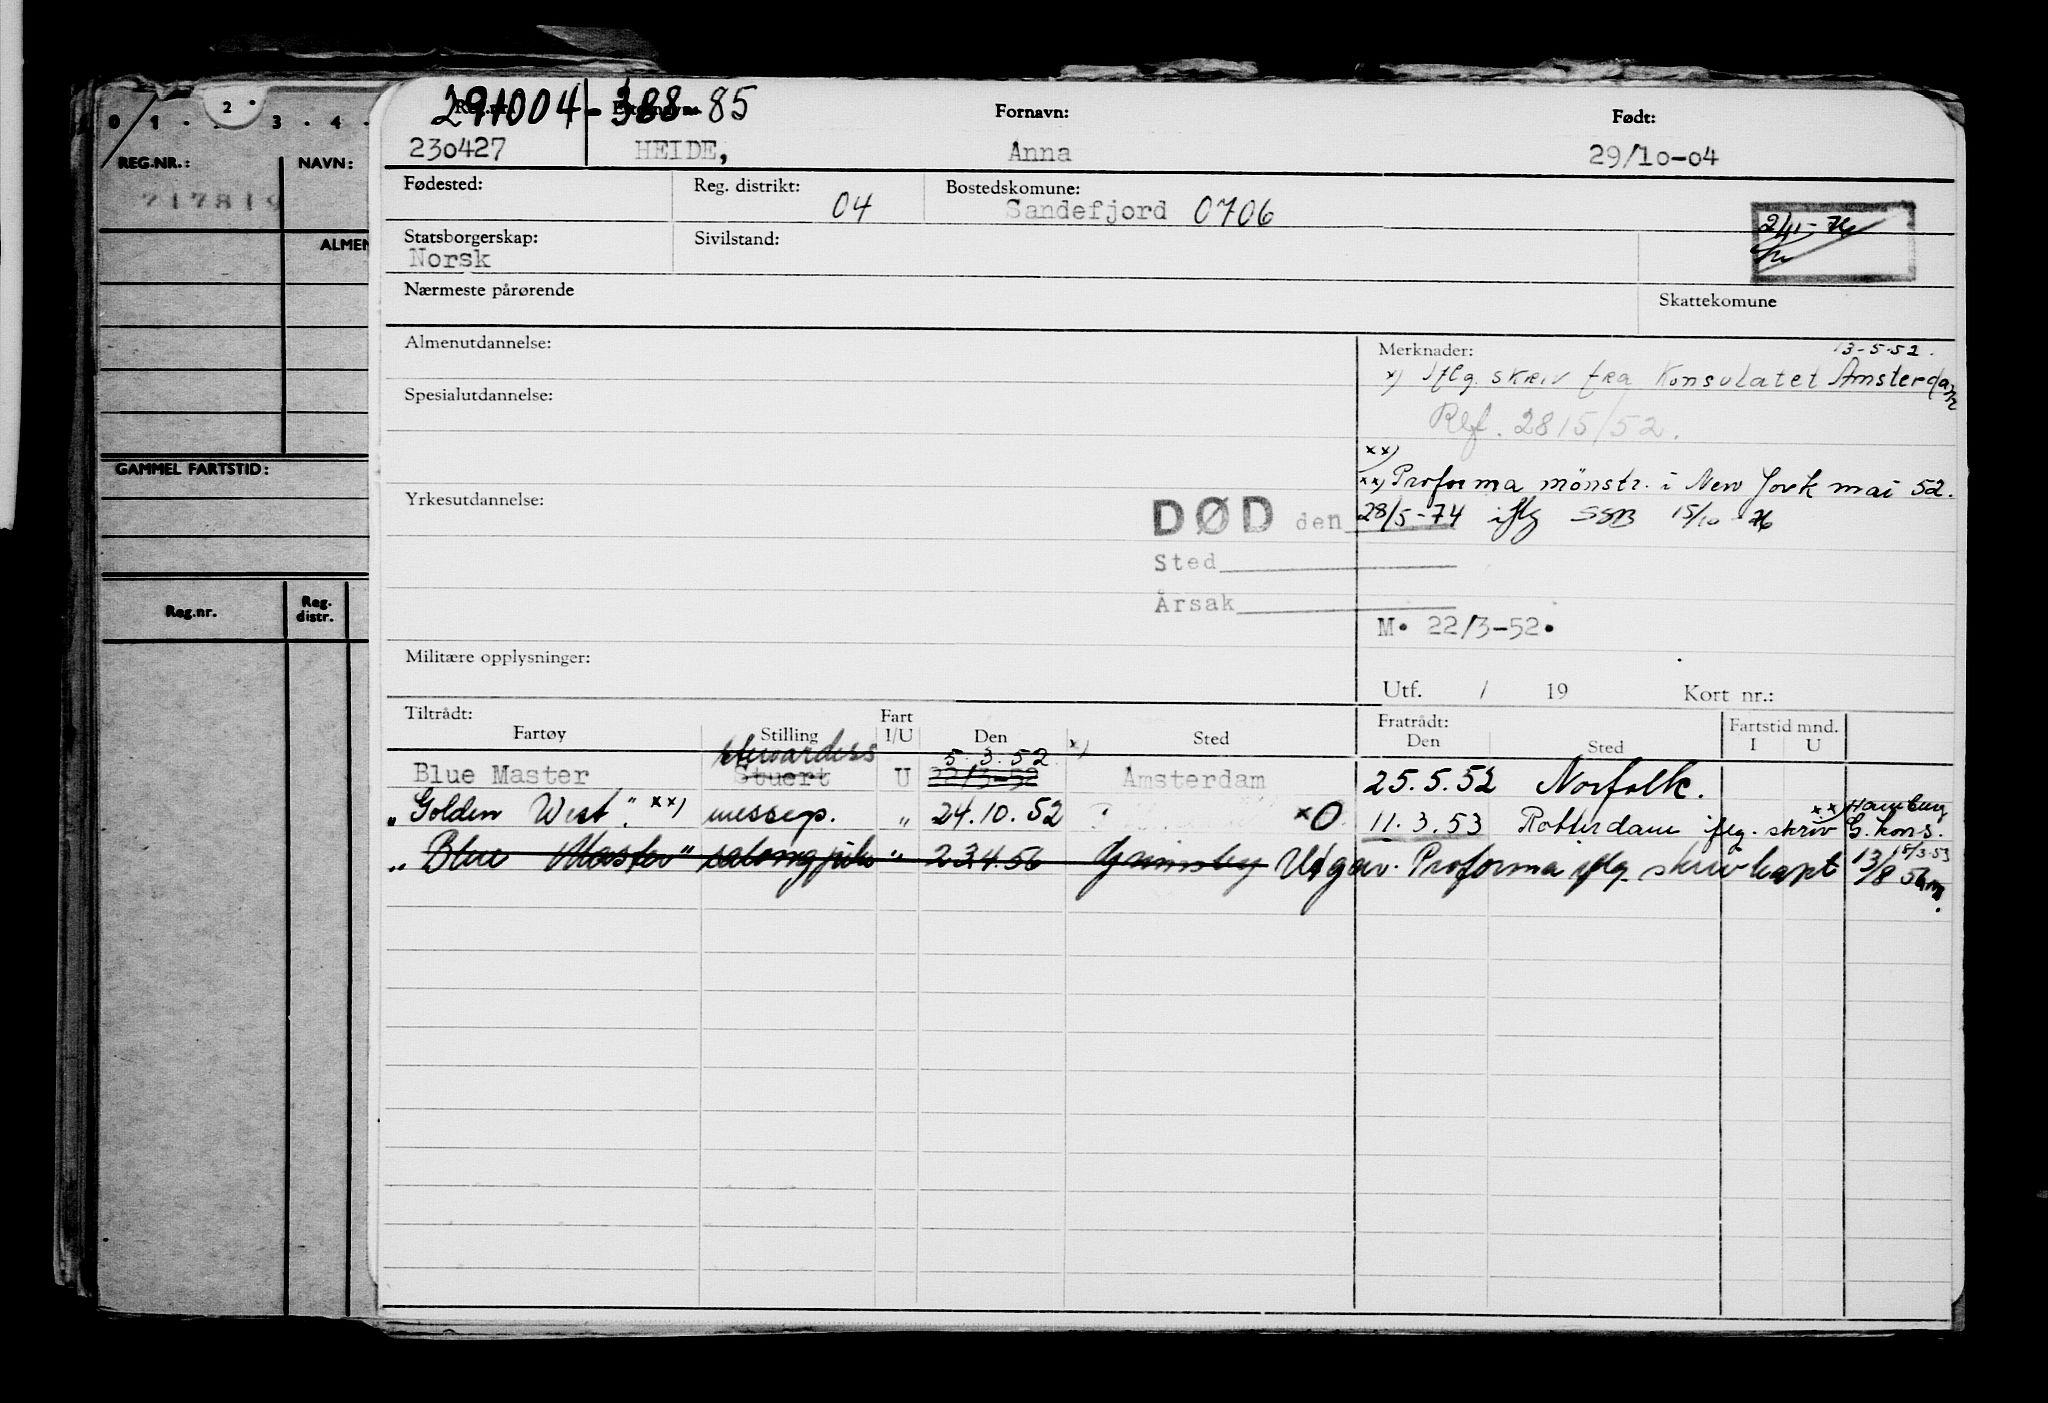 2
0 1 . . 3 . 4 .
REG.NR.: NAVN:
717819
ALMEN
GAMMEL FARTSTID:
Reg.nr. Reg. distr.
291004-38885
Reg.nr. Etternavn: Fornavn: Født:
230427 HEIDE, Anna 29/10-04
Fødested: Reg. distrikt: 04 Bostedskomune: Sandefjord 0706
2/11-76
Statsborgerskap: Sivilstand:
Norsk
Nærmeste pårørende Skattekomune
Almenutdannelse: Merknader: 13-5-52.
x) Iflg. skriv fra Konsulatet Amsterdam
Spesialutdannelse: Ref. 2815/52.
xx)
xx) Proforma mönstr. i New York mai 52.
Yrkesutdannelse: DØD den 28/5-74 iflg SSB 15/10-76
Sted
Årsak
M. 22/3-52.
Militære opplysninger:
Utf. / 19 Kort nr.:
Tiltrådt: Fratrådt: Fartstid mnd.
Fartøy Stilling Fart I/U Den Sted Den Sted I U
stewardess 5.3.52 x)
Blue Master Stuert U 22/3-52 Amsterdam 25.5.52 Norfolk.
"Golden West". xx) messep. " 24.10.52 xO 11.3.53 Rotterdam iflg. skriv xx) Hamburg G. kons. 15/3-53
"Blue Master" salongpike " 23.4.56 Grimsby Utgår. Proforma iflg. skriv kapt 13/8 56